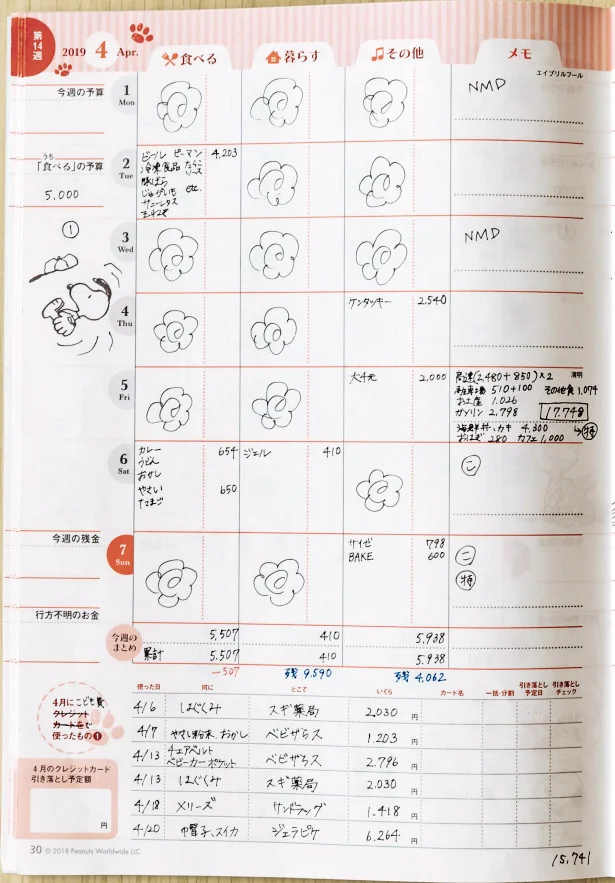 第14週
2019 4 Apr.
食べる
暮らす
その他
メモ
今週の予算
1 Mon
エイプリルフール
NMD
うち
「食べる」の予算
5.000
2 Tue
ビール ピーマン 4,203
冷凍食品 たらこソース
豚ばら
じゃがいも etc.
サニーレタス
たまねぎ
①
3 Wed
NMD
4 Thu
ケンタッキー 2,540
5 Fri
大4元 2,000
清明
高速(2,480+850)×2
駐車場 510+100 その他食 1,074
お土産 1.026
ガソリン 2.798 17.748
海鮮丼、カキ 4,300 ↳特
おはぎ 280 カフェ 1,000
6 Sat
カレー 654
うどん
おかし
やさい 650
たまご
ジェル 410
こ
今週の残金
7 Sun
サイゼ 798
BAKE 600
こ
特
行方不明のお金
今週のまとめ
5,507 410 5,938
累計 5.507 410 5.938
-507 残 9.590 残 4,062
使った日 何に どこで いくら カード名 一括・分割 引き落とし予定日 引き落としチェック
4月にこども費
クレジット
カードをで
使ったもの❶
4/6 はぐくみ スギ薬局 2,030 円
4/7 やさい粉末、おかし ベビザらス 1.203 円
4/13 チェアベルト ベビーカーポケット ベビザらス 2.796 円
4/13 はぐくみ スギ薬局 2.030 円
4/18 メリーズ サンドラッグ 1.418 円
4/20 帽子、スイカ ジェラピケ 6.264 円
4月のクレジットカード
引き落とし予定額
円
30 © 2018 Peanuts Worldwide LLC
15.741